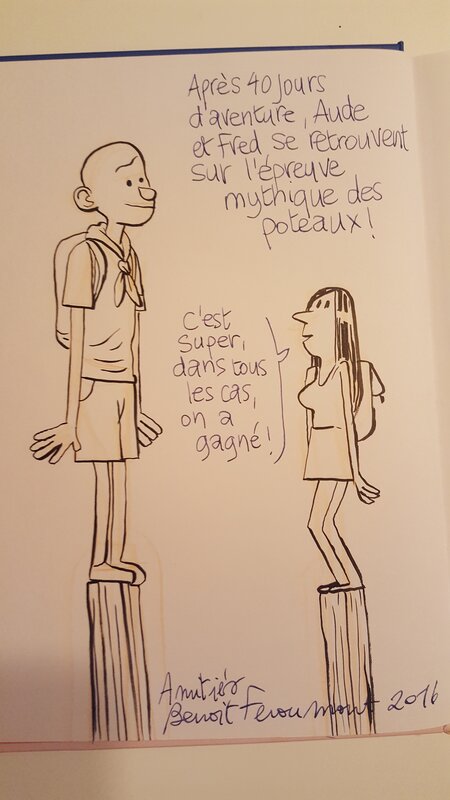 Après 40 jours
d'aventure, Aude
et Fred se retrouvent
sur l'épreuve
mythique des
poteaux!
C'est
super,
dans tous
les cas,
on a
gagné!
Amitiés
Benoit Feroumont 2016